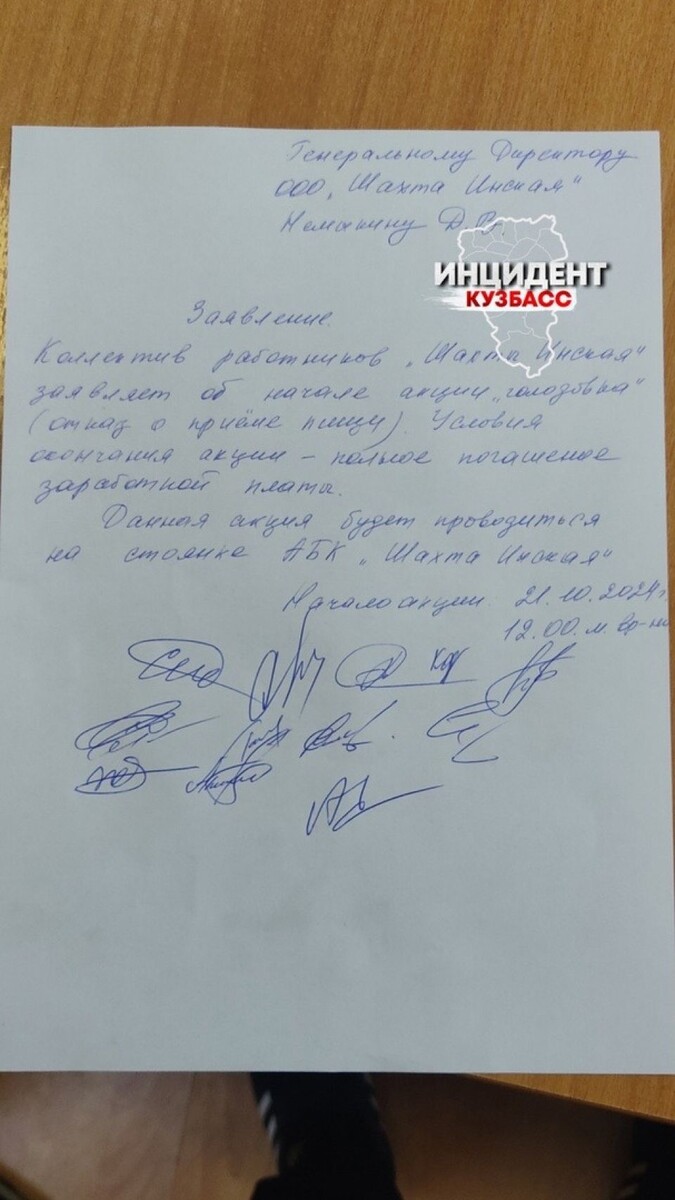 Генеральному Директору
ООО „Шахта Инская"
Д.В.
ИНЦИДЕНТ
КУЗБАСС
Заявление.
Коллектив работников „Шахты Инская"
заявляет об начале акции „голодовка"
(отказ о приёме пищи). Условия
окончания акции – полное погашение
заработной платы.
Данная акция будет проводиться
на стоянке АБК „Шахта Инская"
Начало акции. 21.10.2024г
12.00. м. вр-ни